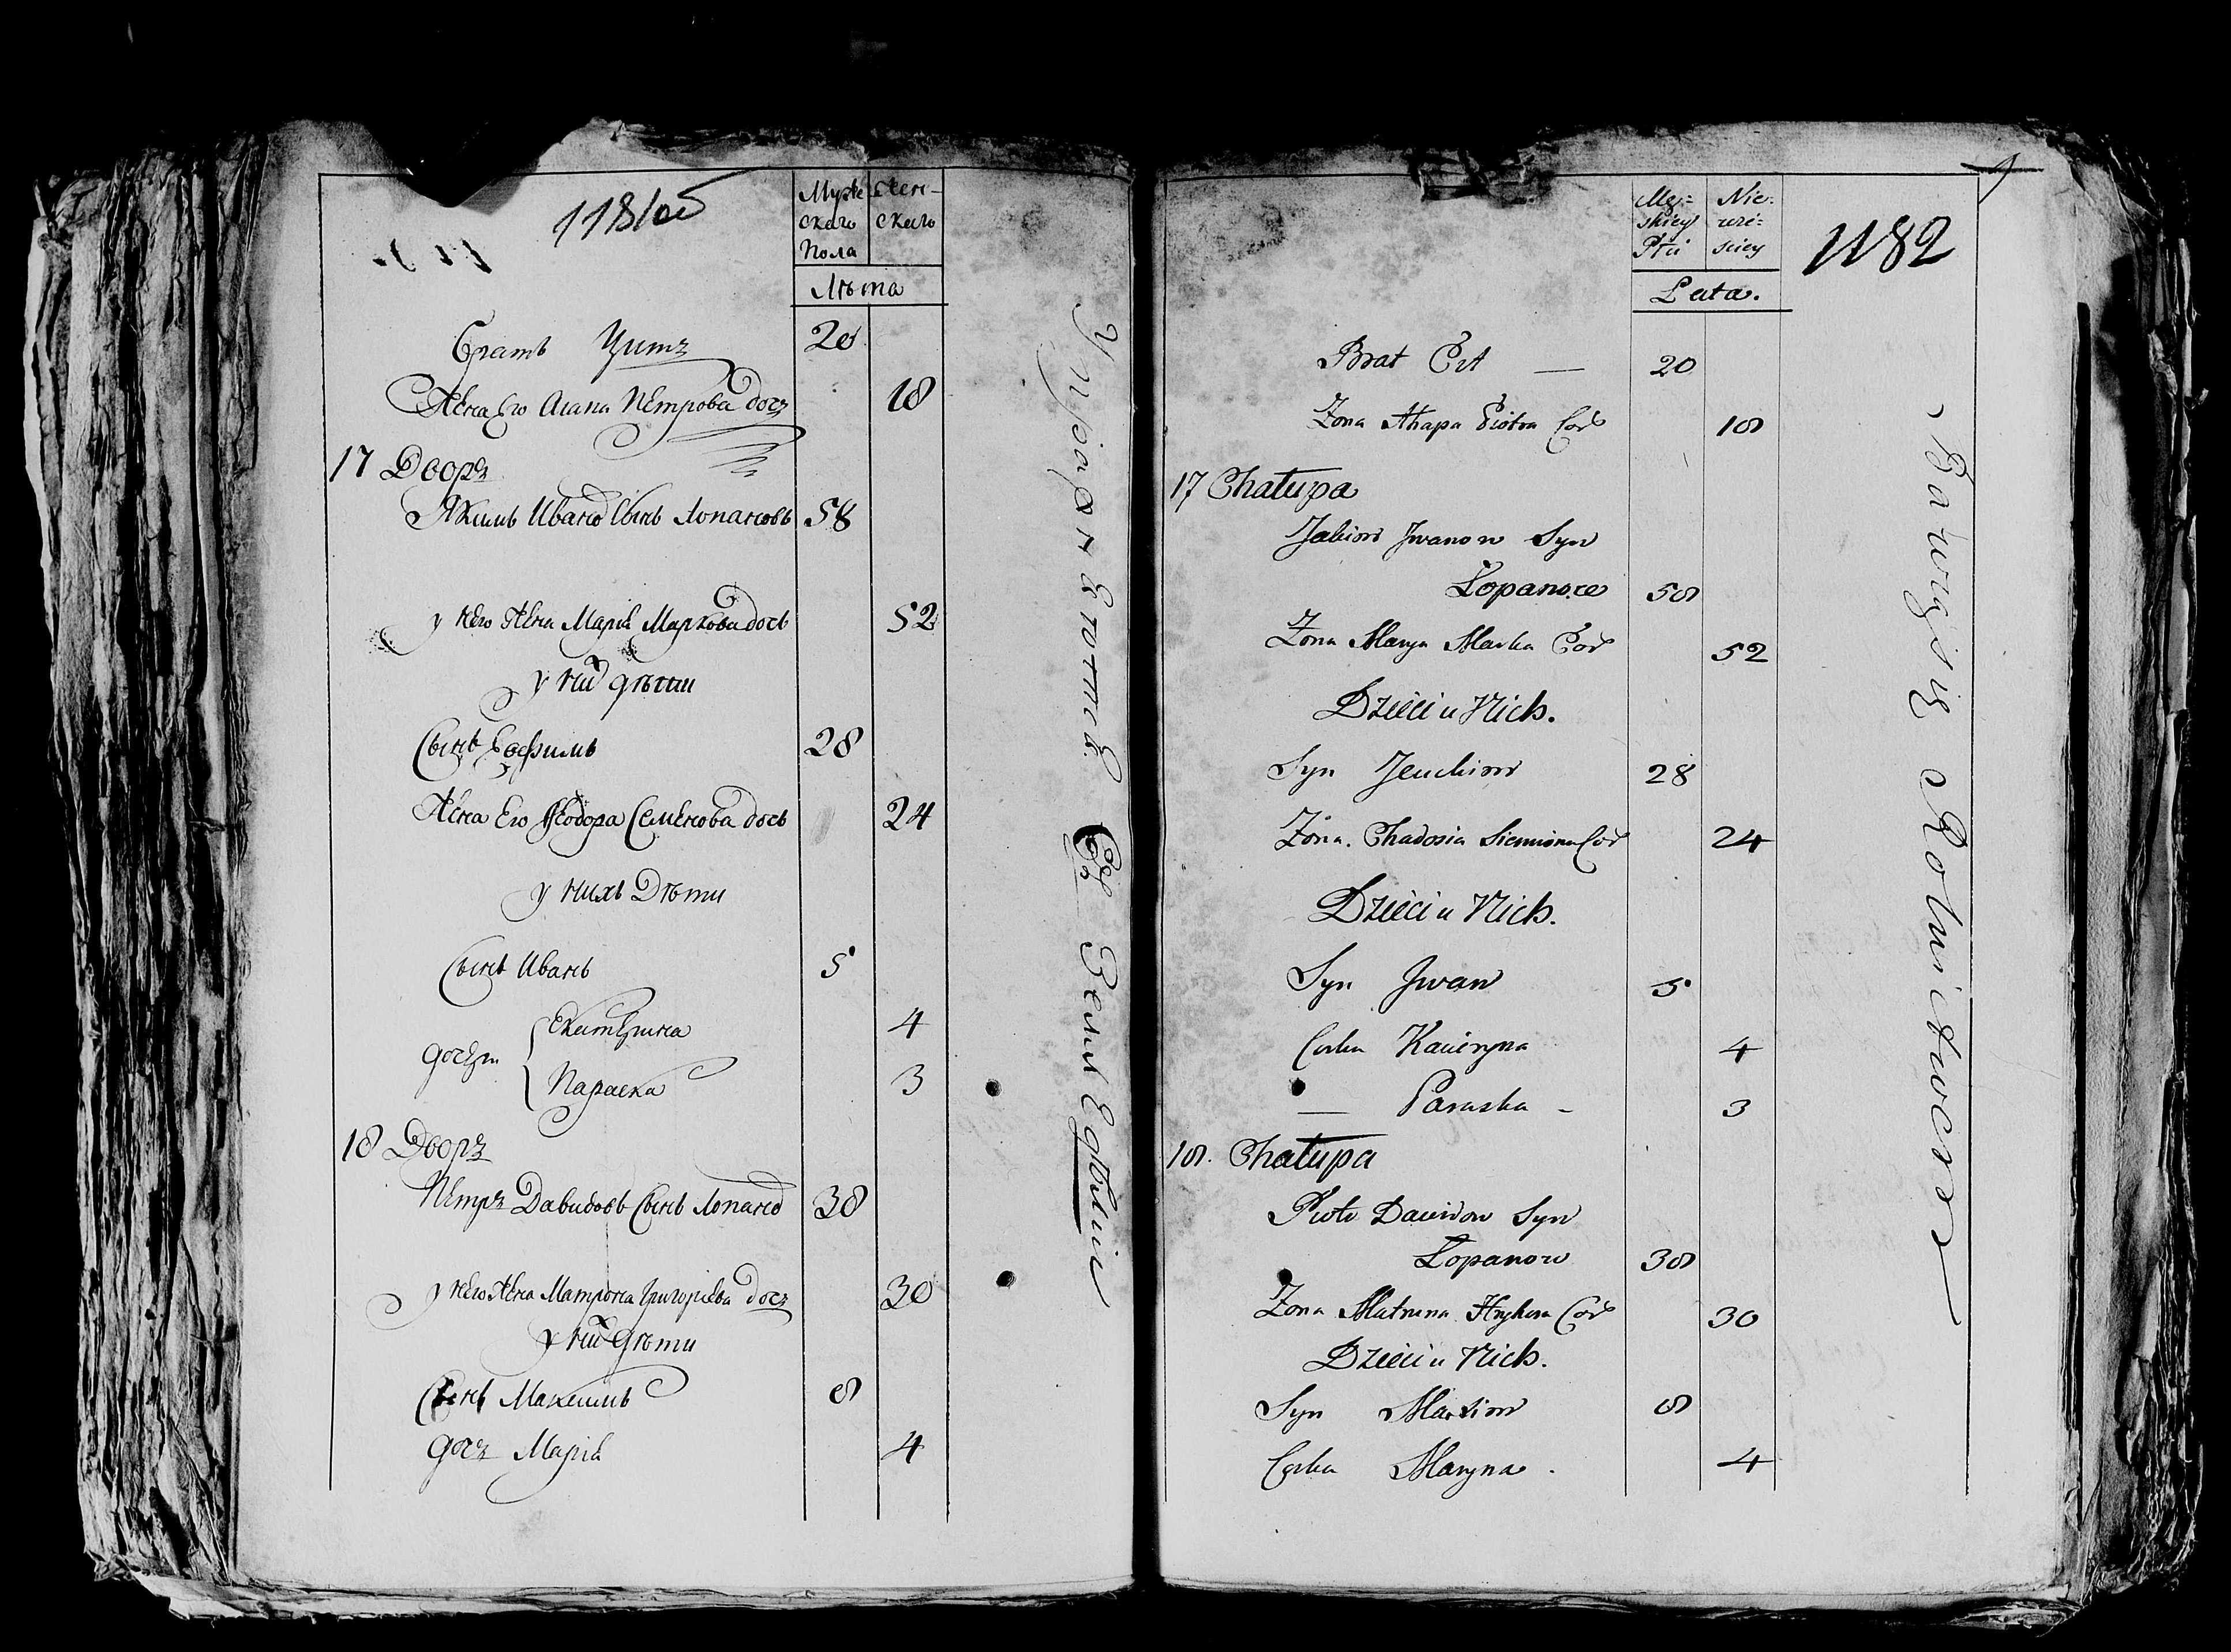 1181об
Муже
ского
Пола
Жен-
скаго
Лѣта
Братъ Титъ 20
Жена Его Агапа Петрова дочь 18
17 Дворъ
Якимъ Ивано Сынъ Лопановъ 58
у него Жена Марія Маркова дочь 52
у них дѣти
Сынъ Евфимъ 28
Жена Его Феодора Семенова дочь 24
у нихъ Дѣти
Сынъ Иванъ 5
дочери Екатерина 4
Параска 3
18 Дворъ
Петръ Давидовъ Сынъ Лопано 38
у него Жена Матрона Григорьева дочъ 30
у них дѣти
Сынъ Максимъ 8
дочъ Марія 4
Упражнении
Земледѣліи
1182
Męz=
skiey
Płci
Nie=
wie=
sciey
Lata.
Brat Tit — 20
Zona Ahapa Piotra Cor 18
17 Chałupa
Jakim Jwanow Syn
Łopanow 58
Zona Marya Marka Cor 52
Dzieci u Nich.
Syn Jeuchim 28
Zona. Chadosia Siemiona Cor 24
Dzieci u Nich.
Syn Jwan 5
Corka Kaceryna 4
— Paraska - 3
18. Chałupa
Piotr Dawidow Syn
Łopanow 38
Zona Matruna Hryhora Cor 30
Dzieci u Nich.
Syn Maxim 8
Corka Maryna. 4
Bawią się Rolnictwem